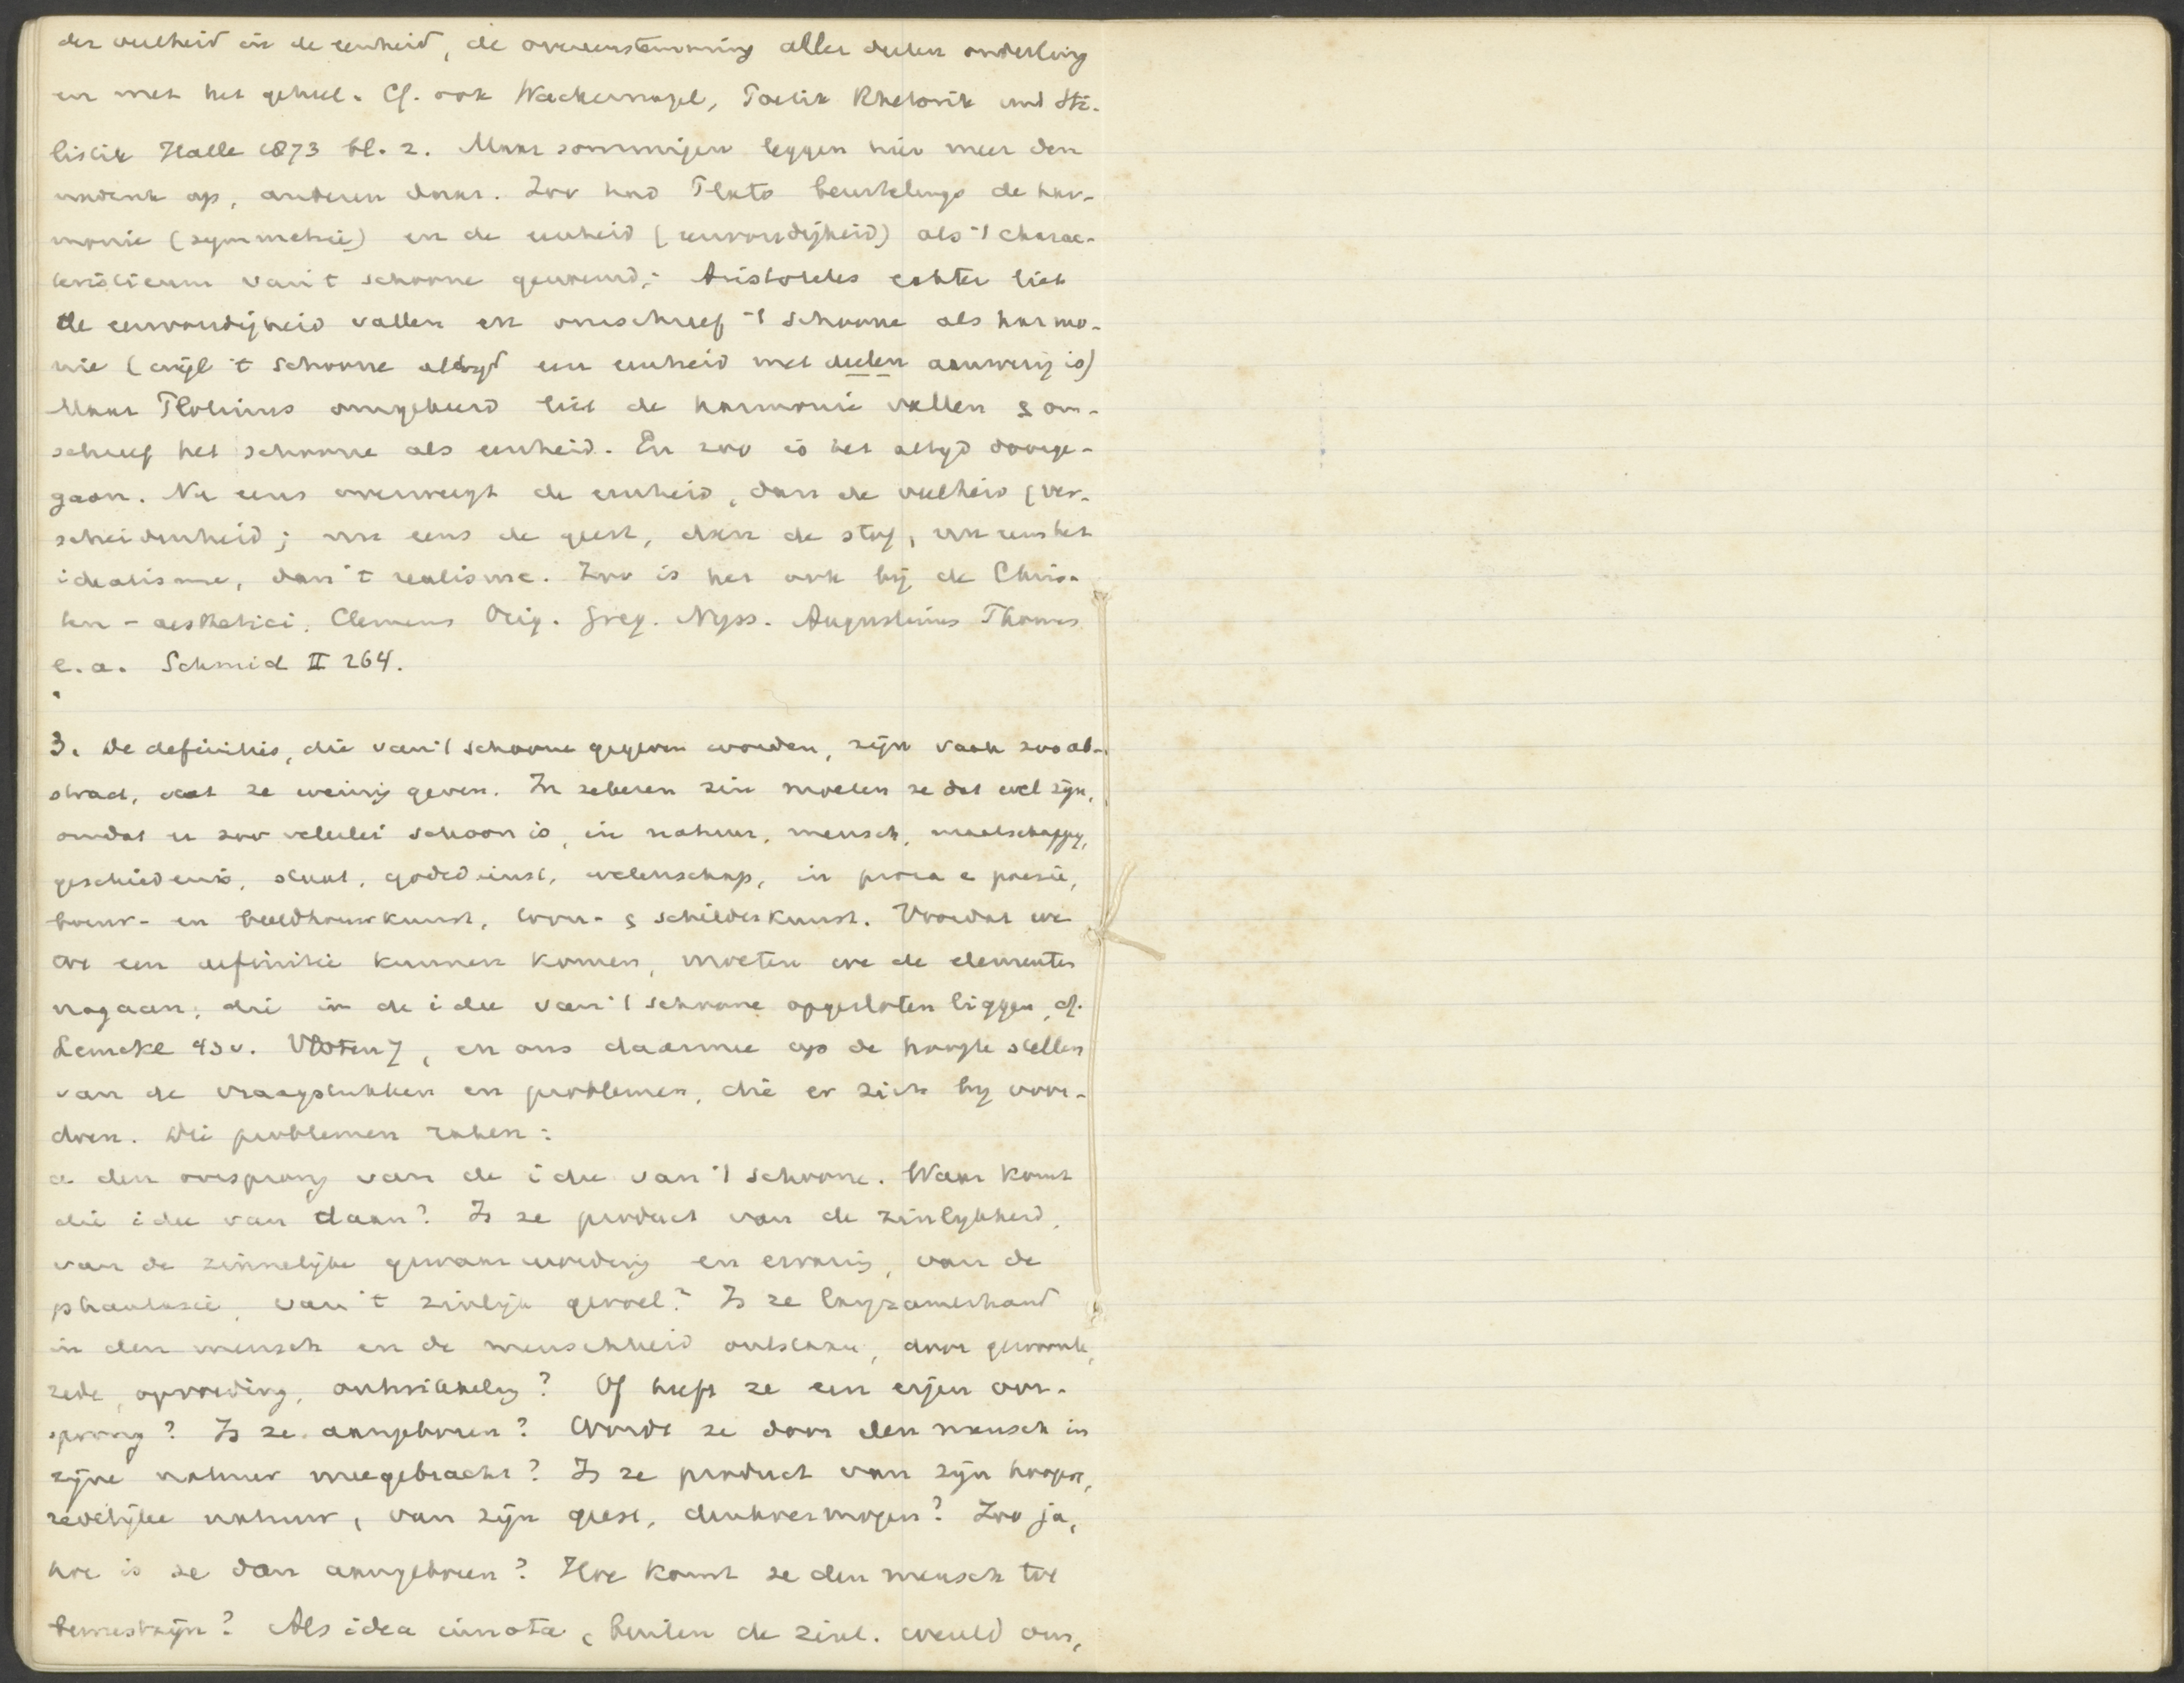 der veelheid in de eenheid, de overeenstemming aller deelen onderling
en met het geheel. Cf. ook Wackernagel, Poetik Rhetorik und Sti-
listik Halle 1873 bl. 2. Maar sommigen leggen hier meer den
nadruk op, anderen daar. Zoo had Plato beurtelings de har-
monie (symmetrie) en de eenheid (eenvoudigheid) als 't charac-
teristicum van 't schoone genoemd; Aristoteles echter liet
de eenvoudigheid vallen en omschreef 't schoone als harmo-
nie (wijl 't schoone altijd een eenheid met deelen aanwezig is)
Maar Plotinus omgekeerd liet de harmonie vallen & om-
schreef het schoone als eenheid. En zoo is het altijd doorge-
gaan. Nu eens overweegt de eenheid, dan de veelheid (ver-
scheidenheid; nu eens de geest, dan de stof, nu eens het
idealisme, dan 't realisme. Zoo is het ook bij de Chris-
ten-aesthetici, Clemens Orig. Greg. Nyss. Augustinus Thomas
e.a. Schmid II 264.
3. De definities, die van 't schoone gegeven worden, zijn vaak zoo ab-
stract, dat ze weinig geven. In zekeren zin moeten ze dat wel zijn,
omdat er zoo velerlei schoon is, in natuur, mensch, maatschappy,
geschiedenis, staat, godsdienst, wetenschap, in proza e poezie,
bouw- en beeldhouwkunst, toon- & schilderkunst. Voordat we
tot een definitie kunnen komen, moeten we de elementen
nagaan, die in de idee van 't schoone opgesloten liggen, cf.
Lemcke 43v. Vloten 7, en ons daarmee op de hoogte stellen
van de vraagstukken en problemen, die er zich bij voor-
doen. Die problemen raken:
a den oorsprong van de idee van 't schoone. Waar komt
die idee van daan? Is ze product van de zinlijkheid,
van de zinnelijke gewaarwording en ervaring, van de
phantasie, van 't zinlijk gevoel? Is ze langzamerhand
in den mensch en de menschheid ontstaan, door gewoonte,
zede, opvoeding, ontwikkeling? Of heeft ze een eigen oor-
sprong? Is ze aangeboren? Wordt ze door den mensch in
zijne natuur meegebracht? Is ze product van zijn hoogere,
zedelijke natuur, van zijn geest, denkvermogen? Zoo ja,
hoe is ze dan aangeboren? Hoe komt ze den mensch tot
bewustzijn? Als idea innata, buiten de zinl. wereld om,